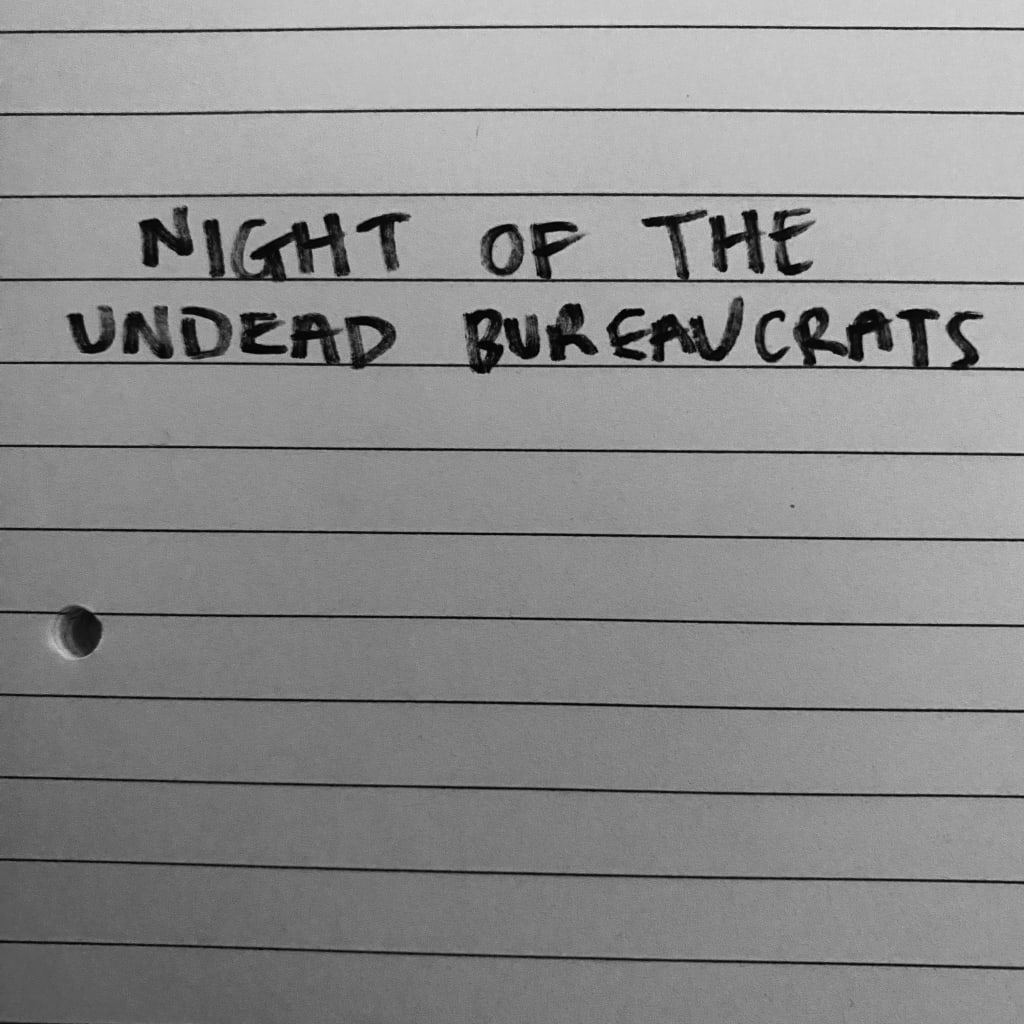 NIGHT OF THE
UNDEAD BUREAUCRATS